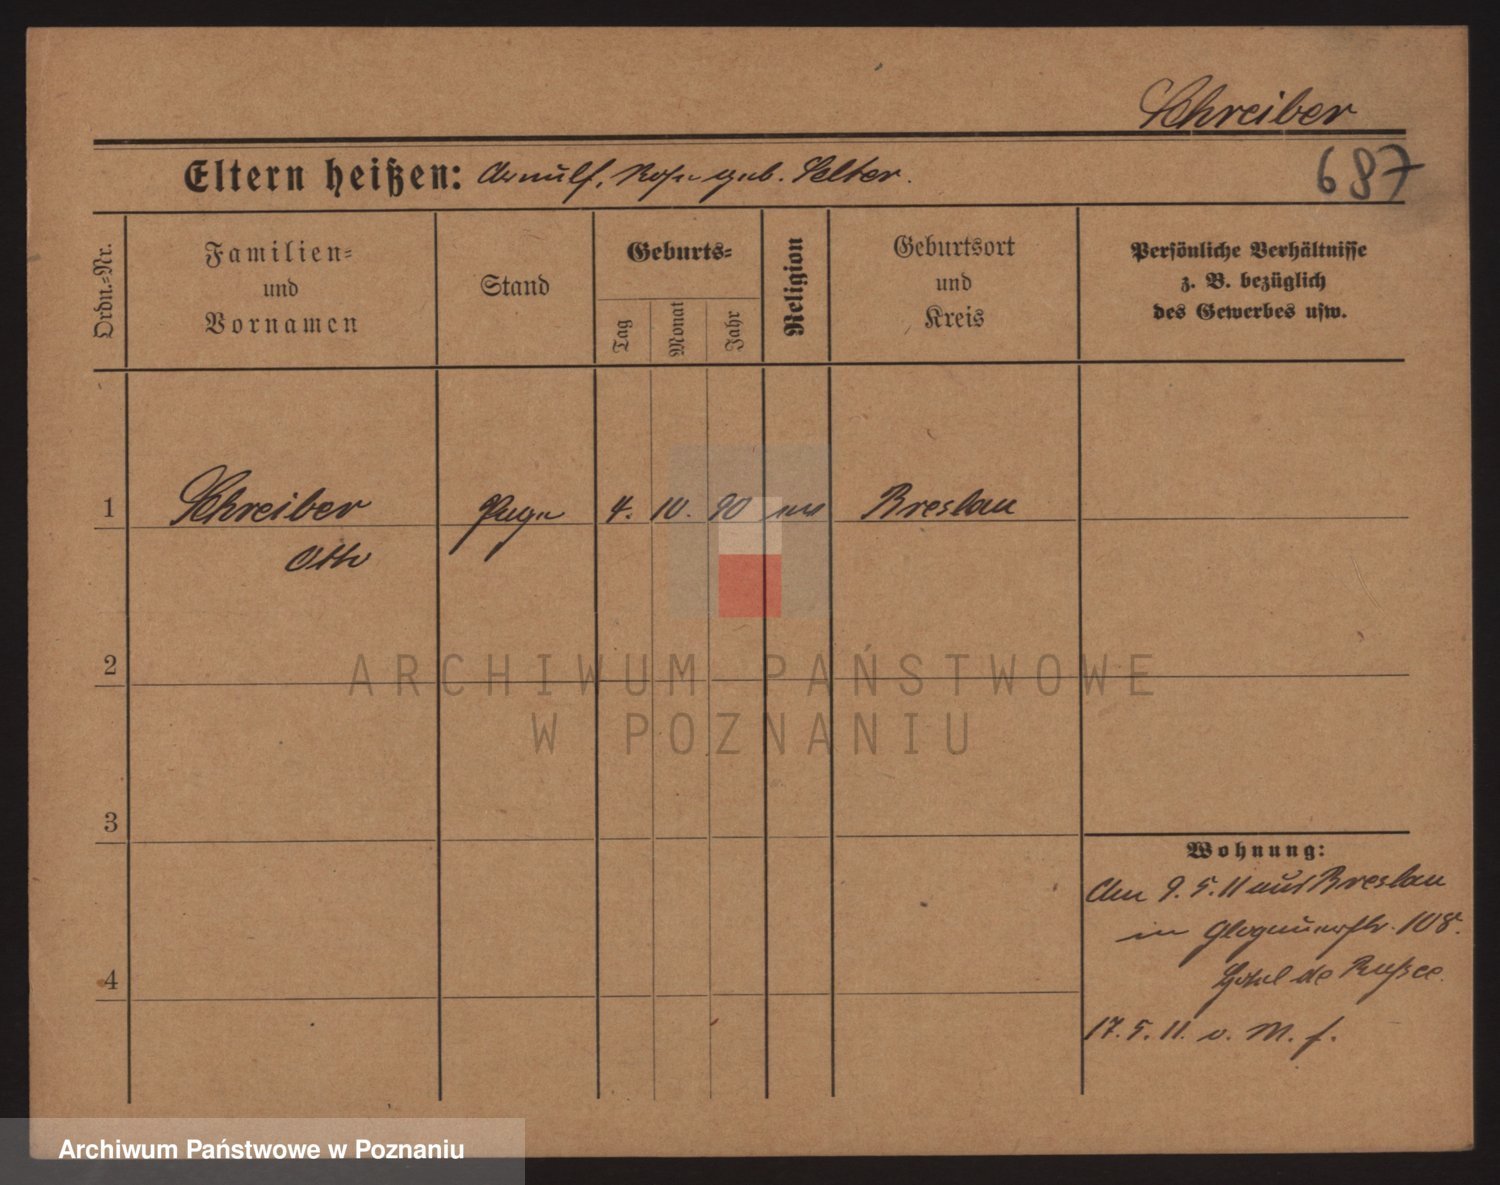 Schreiber
687
Eltern heißen: Arnulf, Rosa geb. Selter.
Ordn.=Nr.
Familien=
und
Vornamen
Stand
Geburts=
Tag
Monat
Jahr
Religion
Geburtsort
und
Kreis
Persönliche Verhältnisse
z. B. bezüglich
des Gewerbes usw.
1 Schreiber 4. 10. 90 Breslau
Otto
2
3
4
Wohnung:
Am 9.5.11 aus Breslau
in Glogauerstr. 108.
Hotel de Russee.
17.5.11. v. M. f.
ARCHIWUM PAŃSTWOWE
W POZNANIU
Archiwum Państwowe w Poznaniu